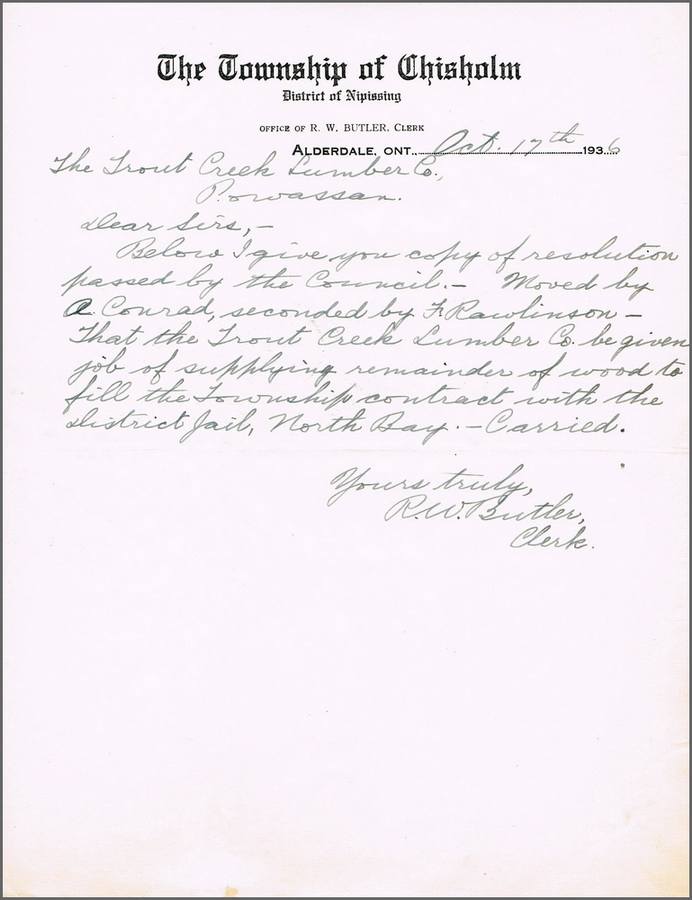 The Township of Chisholm
District of Nipissing
OFFICE OF R. W. BUTLER, CLERK
ALDERDALE, ONT., Oct. 17th 1936
The Trout Creek Lumber Co.,
Powassan.
Dear Sirs,-
Below I give you copy of resolution
passed by the Council.- Moved by
A. Conrad, seconded by F. Rawlinson -
That the Trout Creek Lumber Co. be given
job of supplying remainder of wood to
fill the Township contract with the
District Jail, North Bay. - Carried.
Yours truly,
R.W. Butler,
Clerk.